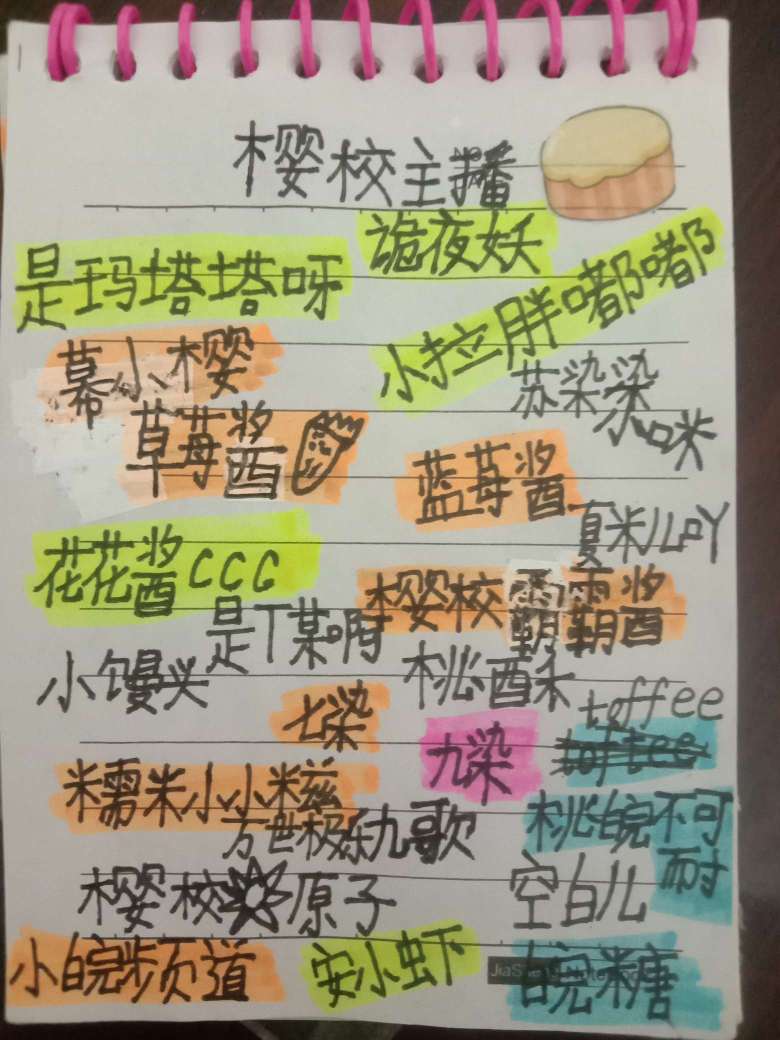 樱校主播
诡夜妖
是玛塔塔呀
小拉胖嘟嘟
幕小樱
苏染染
草莓酱
小咪
蓝莓酱
夏米儿吖
花花酱CCC
樱校霸霸酱
是丁某啊
小馒头
桃酥
toffee
七染
九染
toffee
糯米小小糍
桃皖不可
耐
万世极乐九歌
樱校 原子
空白儿
小皖频道
安小虾
皖糖
JiaShe Notebook